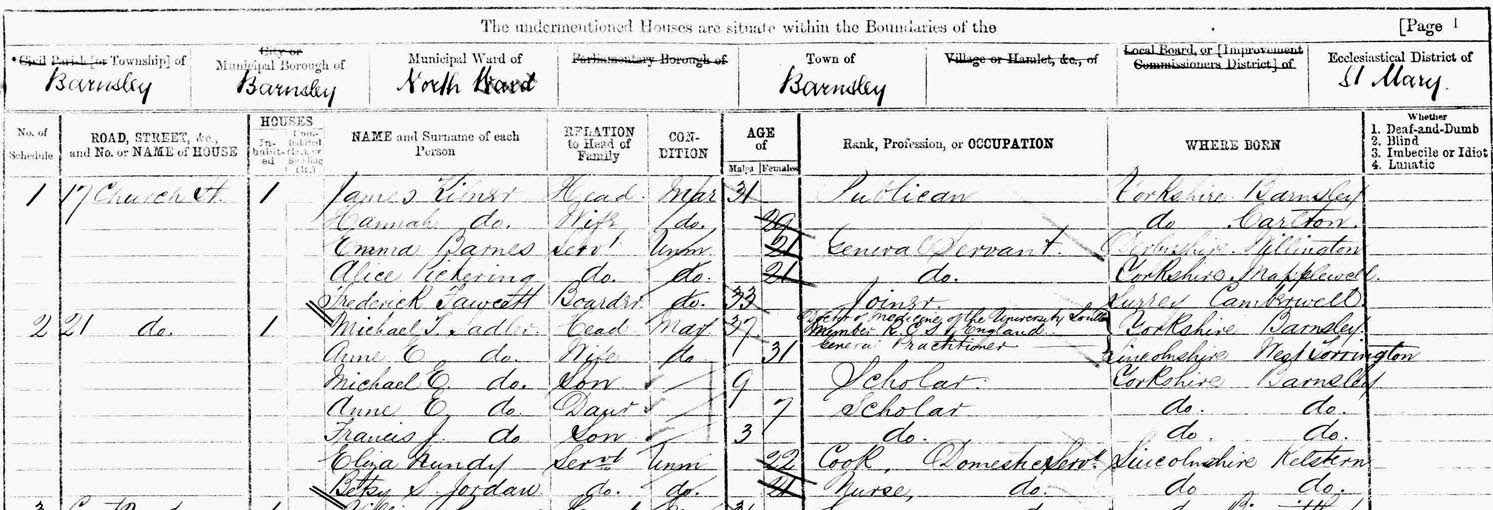 The undermentioned Houses are situate within the Boundaries of the [Page 1
Civil Parish [or Township] of City or Municipal Borough of Municipal Ward of Parliamentary Borough of Town of Village or Hamlet, &c., of Local Board, or [Improvement Commissioners District] of Ecclesiastical District of
Barnsley Barnsley North Ward Barnsley St Mary.
No. of Schedule ROAD, STREET, &c., and No. or NAME of HOUSE HOUSES Inhabited NAME and Surname of each Person RELATION to Head of Family CONDITION AGE of Males Females Rank, Profession, or OCCUPATION WHERE BORN Whether
1. Deaf-and-Dumb
2. Blind
3. Imbecile or Idiot
4. Lunatic
1 17 Church St. 1 James Head Mar 31 Publican Yorkshire Barnsley
Hannah do. Wife do. 29 do Carlton
Emma Barnes Servt Unm 21 General Servant Derbyshire Willington
Alice Pickering do. do. 21 do. Yorkshire Mapplewell
Frederick Fawcett Boarder do. 33 Joiner Surrey Camberwell
2 21 do. 1 Michael T. Sadler Head Mar 37 Doctor of Medicine of the University London Member R.C.S. England General Practitioner Yorkshire Barnsley
Anne E. do. Wife do 31 Lincolnshire West Torrington
Michael E. do. Son 9 Scholar. Yorkshire Barnsley
Anne E. do. Daur 7 Scholar do. do.
Francis J. do Son 3 do. do. do.
Eliza Mundy Servt Unm 22 Cook, Domestic Servt Lincolnshire Kelstern
Betsy S. Jordan do. do. 21 Nurse, do. do do.
3